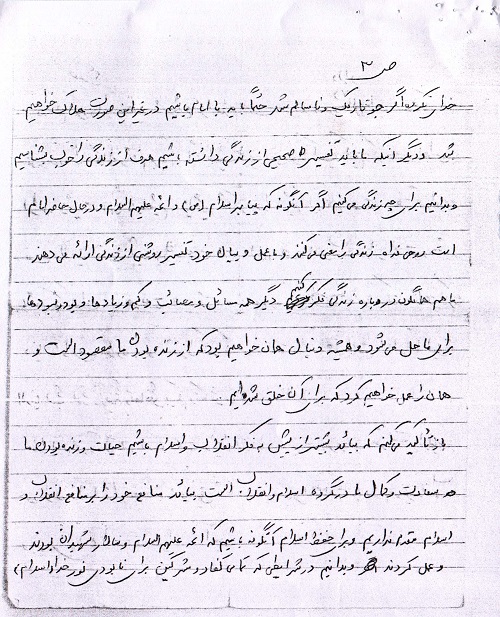 ص ۳
خدای نکرده اگر جو تاریک و ناسالم شد حتماً باید با امام باشیم در غیر این صورت هلاک خواهیم
شد و دیگر آنکه ما باید تفسیر صحیحی از زندگی داشته باشیم هدف از زندگی را خوب بشناسیم
و بدانیم برای چه زندگی می‌کنیم اگر آنگونه که پیامبر اسلام (ص) و ائمه علیهم السلام و در حال حاضر امام
است روح خدا زندگی را معنی می‌کند و با عمل و بیان خود تفسیر روشنی از زندگی ارائه می‌دهند
ما هم همانگونه درباره زندگی فکر کنیم دیگر همه مسائل و مصائب و کم و زیادها و بود و نبودها
برای ما حل می‌شود و همیشه دنبال همان خواهیم بود که از زنده بودن ما مقصود است و
همان را عمل خواهیم کرد که برای آن خلق شده‌ایم
باز تأکید می‌کنم که بیائید بیشتر از پیش به فکر انقلاب و اسلام باشیم حیات و زنده بودن ما
و سعادت و کمال ما در گرو اسلام و انقلاب است بیائید منافع خود را بر منافع انقلاب و
اسلام مقدم نداریم و برای حفظ اسلام آنگونه باشیم که ائمه علیهم السلام و سالار شهیدان بودند
و عمل کردند و بدانیم در شرایطی که تمامی کفار و مشرکین برای نابودی نور خدا (اسلام)